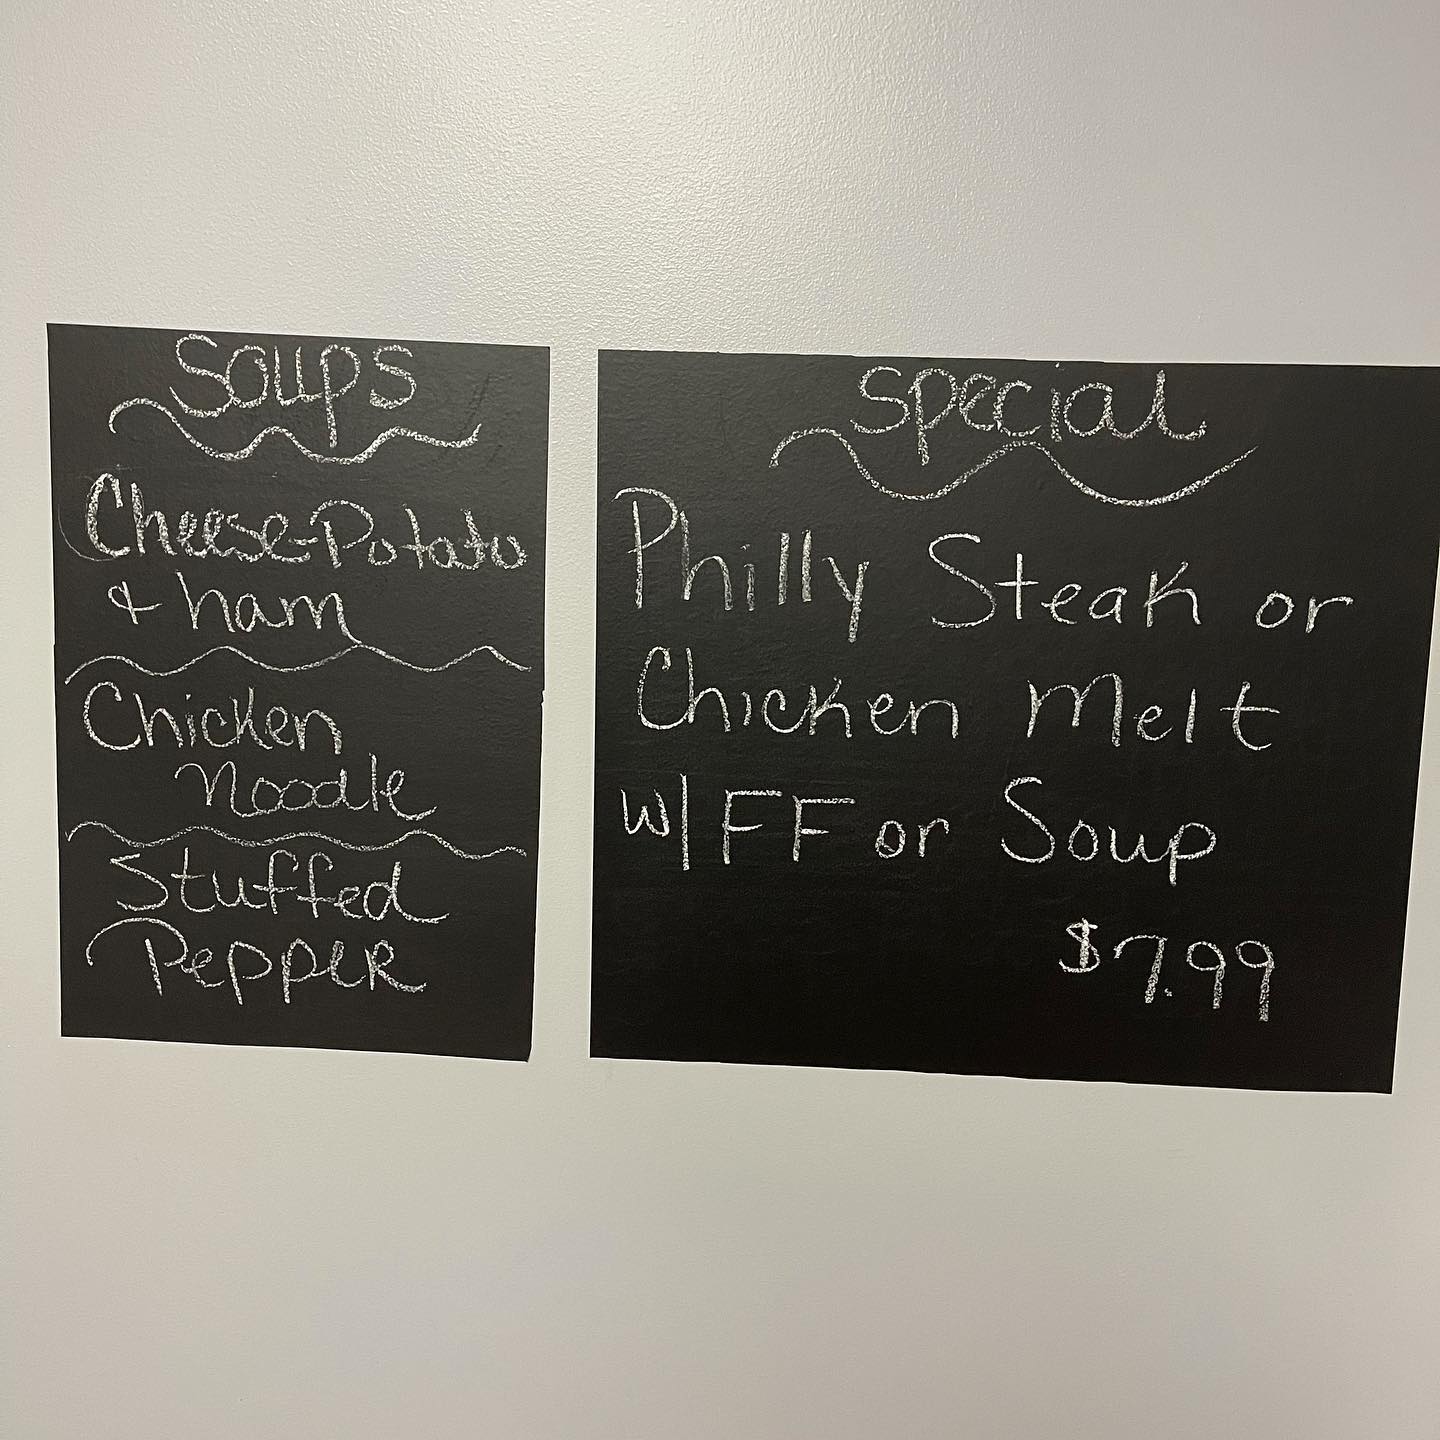 Soups
Cheese-Potato
& ham
Chicken
Noodle
Stuffed
Pepper
Special
Philly Steak or
Chicken Melt
w/FF or Soup
$7.99